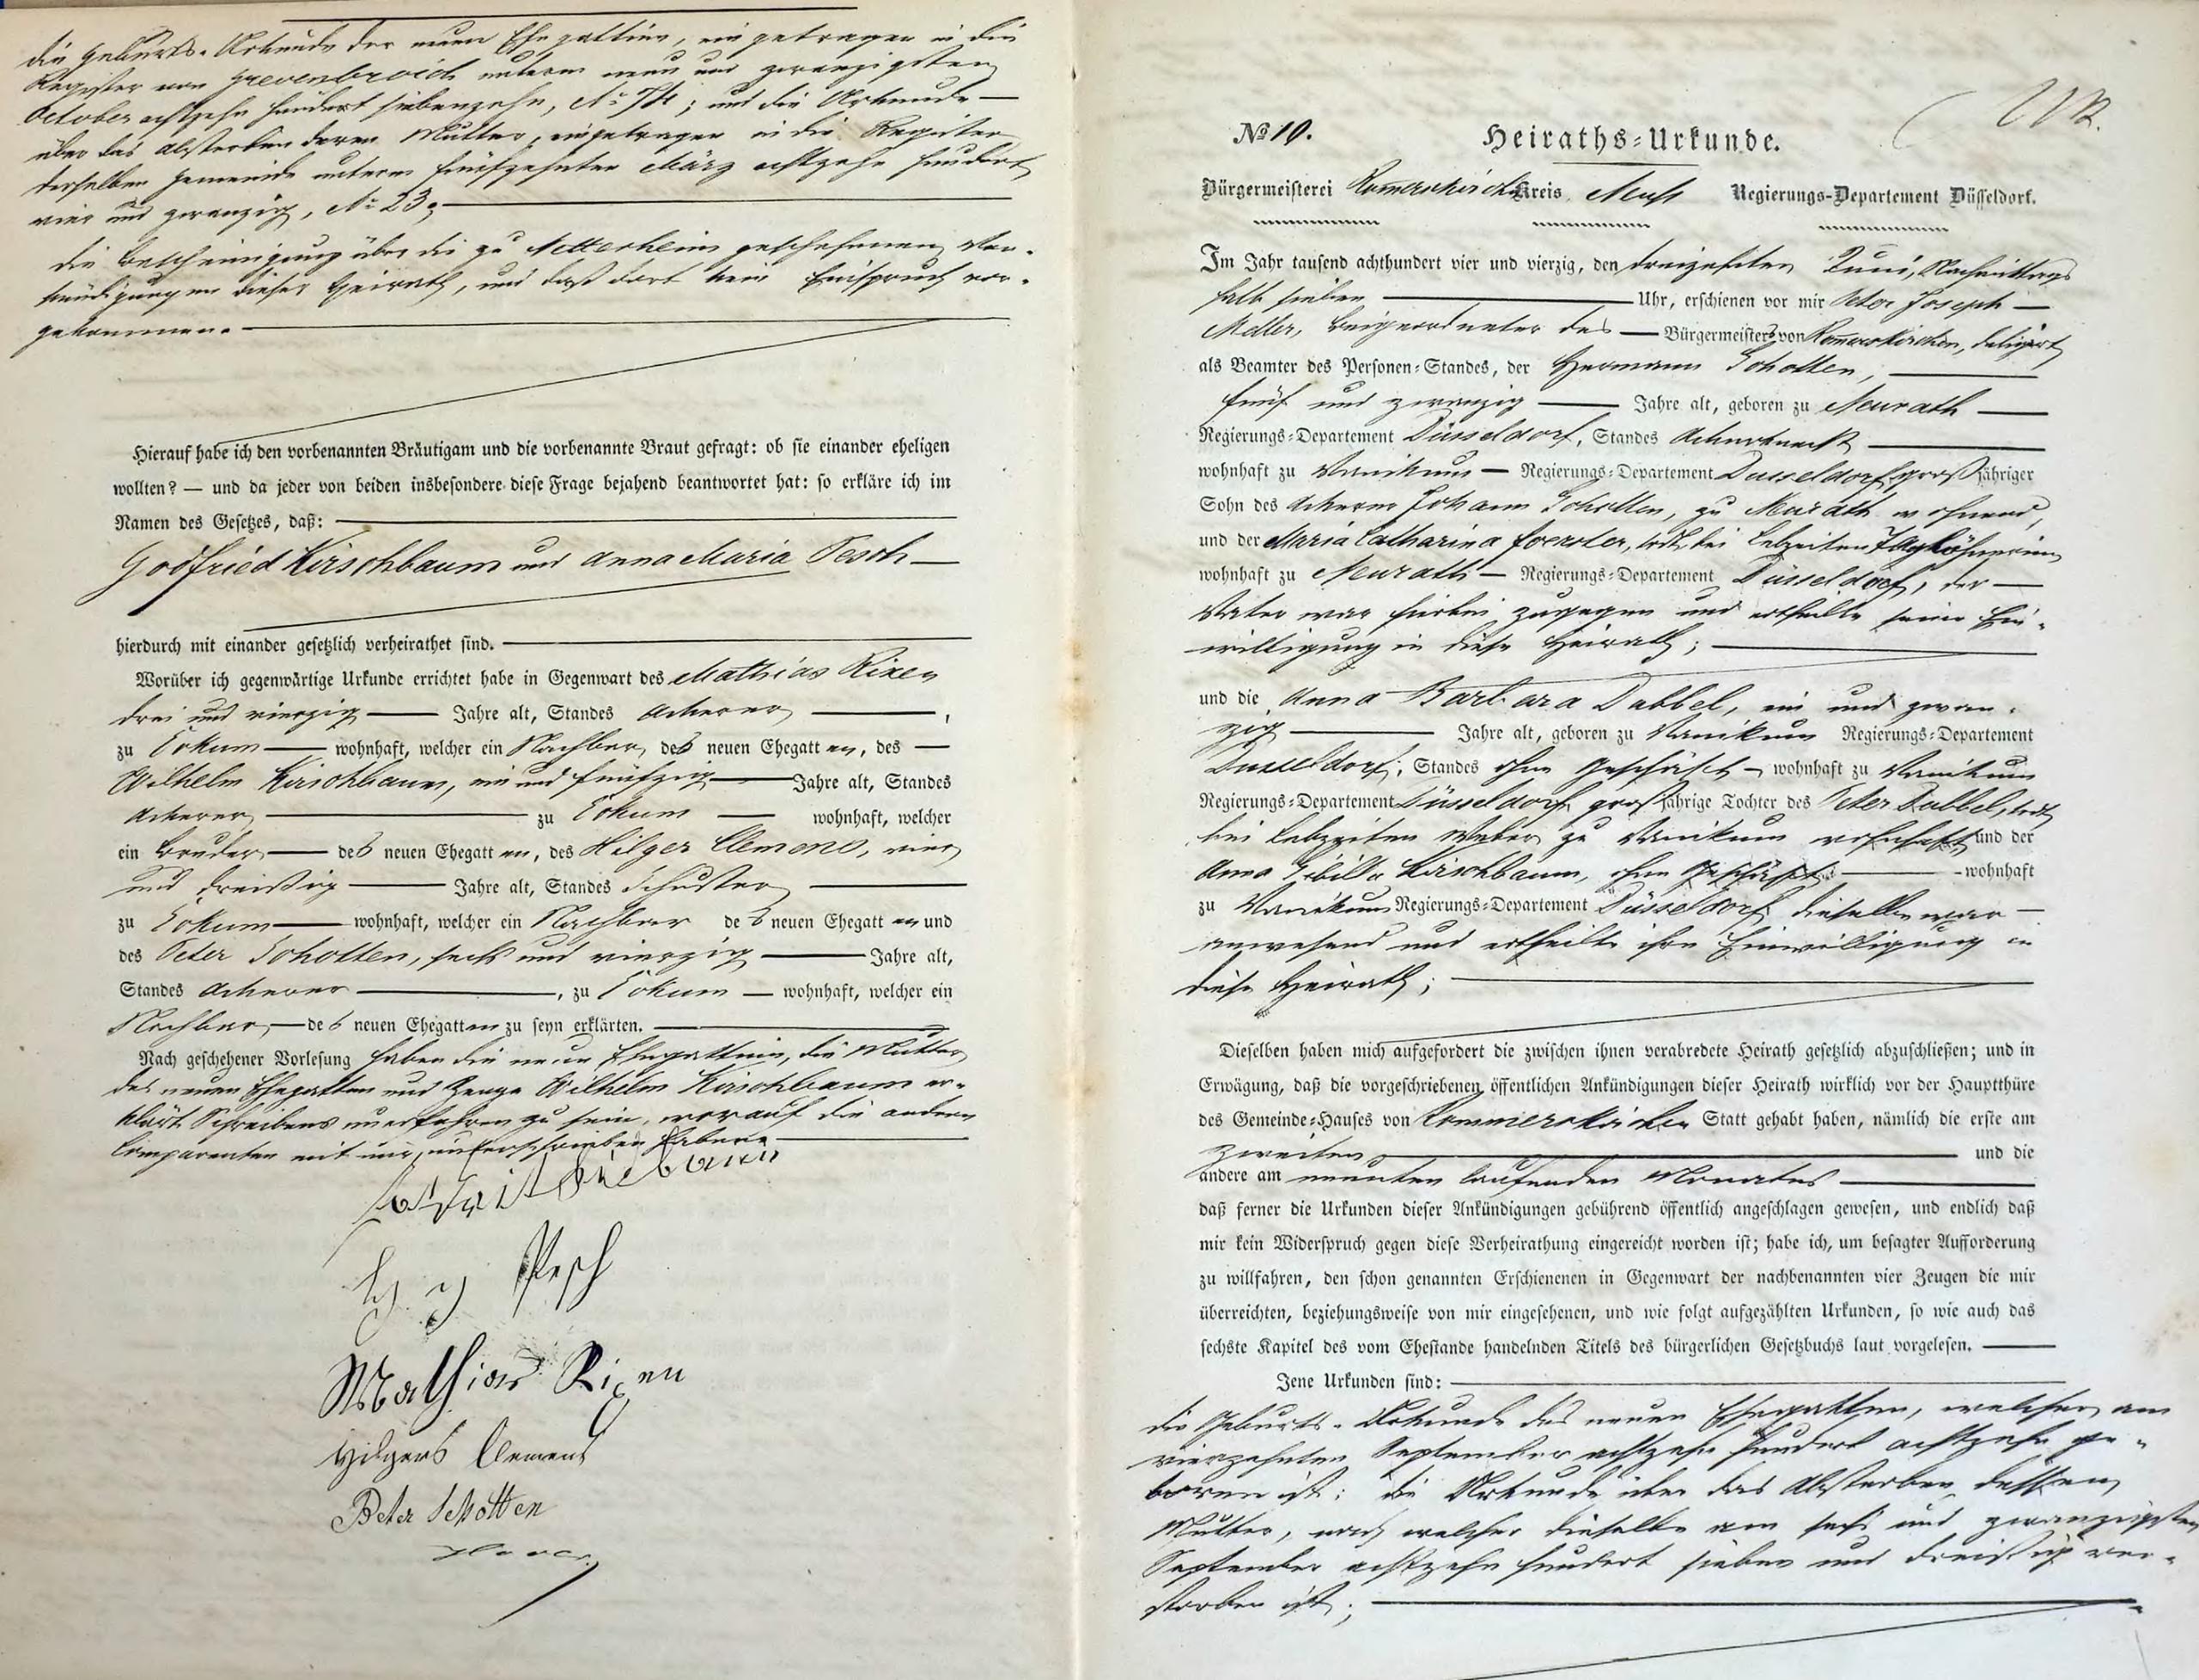 die Geburts-Urkunde der neuen Ehegattinn, eingetragen in die
Register von Grevenbroich unterm neun und zwanzigsten
October achtzehn hundert siebenzehn, No 74; und die Urkunde
über das Absterben deren Mutter, eingetragen in die Register
derselben Gemeinde unterm fünfzehnten März achtzehn hundert
vier und zwanzig, No 23;
die Bescheinigung über die zu geschehenen Ver-
kündigungen dieser Heirath, und daß dort kein Einspruch vor-
gekommen.
Hierauf habe ich den vorbenannten Bräutigam und die vorbenannte Braut gefragt: ob sie einander eheligen
wollten? — und da jeder von beiden insbesondere diese Frage bejahend beantwortet hat: so erkläre ich im
Namen des Gesetzes, daß:
Godfried Kirschbaum und Anna Maria Pesch
hierdurch mit einander gesetzlich verheirathet sind.
Worüber ich gegenwärtige Urkunde errichtet habe in Gegenwart des Mathias Rixen
drei und vierzig Jahre alt, Standes Ackerer,
zu Eckum wohnhaft, welcher ein Nachbar des neuen Ehegatten, des
Wilhelm Kirschbaum, ein und fünfzig Jahre alt, Standes
Ackerer zu Eckum wohnhaft, welcher
ein Bruder des neuen Ehegatten, des Hilger Clemens, vier
und dreißig Jahre alt, Standes Schuster
zu Eckum wohnhaft, welcher ein Nachbar des neuen Ehegatten und
des Peter Schotten, sechs und vierzig Jahre alt,
Standes Ackerer, zu Eckum wohnhaft, welcher ein
Nachbar des neuen Ehegatten zu seyn erklärten.
Nach geschehener Vorlesung haben die neue Ehegattinn, die Mutter
des neuen Ehegatten und Zeuge Wilhelm Kirschbaum er-
klärt Schreibens unerfahren zu sein, worauf die andern
Comparenten mit mir unterschrieben haben.
Pesch
Mathias Rixen
Hilgers Clemens
Peter Schotten
No 10.
Heiraths-Urkunde.
Bürgermeisterei Rommerskirchen Kreis Neuß Regierungs-Departement Düsseldorf.
Im Jahr tausend achthundert vier und vierzig, den dreizehnten Juni, Nachmittags
halb sieben Uhr, erschienen vor mir Peter Joseph
Meller, Beigeordneter des Bürgermeisters von Rommerskirchen, delegirt
als Beamter des Personen-Standes, der Hermann Schotten,
fünf und zwanzig Jahre alt, geboren zu Neurath
Regierungs-Departement Düsseldorf, Standes Ackerknecht
wohnhaft zu Vanikum Regierungs-Departement Düsseldorf, großjähriger
Sohn des Ackerer Johann Schotten, zu Neurath wohnend,
und der Maria Catharina Foerster, todt, bei Lebzeiten Tagelöhnerinn
wohnhaft zu Neurath Regierungs-Departement Düsseldorf, der
Vater war hierbei zugegen und ertheilte seine Ein-
willigung in diese Heirath;
und die Anna Barbara Dabbel, ein und zwan-
zig Jahre alt, geboren zu Vanikum Regierungs-Departement
Düsseldorf, Standes ohne Geschäft wohnhaft zu Vanikum
Regierungs-Departement Düsseldorf großjährige Tochter des Peter Dabbel, todt
bei Lebzeiten Weber zu Vanikum wohnhaft und der
Anna Sibilla Kirschbaum, ohne Geschäft wohnhaft
zu Vanikum Regierungs-Departement Düsseldorf dieselbe war
anwesend und ertheilte ihre Einwilligung in
diese Heirath;
Dieselben haben mich aufgefordert die zwischen ihnen verabredete Heirath gesetzlich abzuschließen; und in
Erwägung, daß die vorgeschriebenen öffentlichen Ankündigungen dieser Heirath wirklich vor der Hauptthüre
des Gemeinde-Hauses von Rommerskirchen Statt gehabt haben, nämlich die erste am
zweiten und die
andere am neunten laufenden Monates
daß ferner die Urkunden dieser Ankündigungen gebührend öffentlich angeschlagen gewesen, und endlich daß
mir kein Widerspruch gegen diese Verheirathung eingereicht worden ist; habe ich, um besagter Aufforderung
zu willfahren, den schon genannten Erschienenen in Gegenwart der nachbenannten vier Zeugen die mir
überreichten, beziehungsweise von mir eingesehenen, und wie folgt aufgezählten Urkunden, so wie auch das
sechste Kapitel des vom Ehestande handelnden Titels des bürgerlichen Gesetzbuchs laut vorgelesen.
Jene Urkunden sind:
die Geburts-Urkunde des neuen Ehegatten, welcher am
vierzehnten September achtzehn hundert achtzehn ge-
boren ist; die Urkunde über das Absterben dessen
Mutter, nach welcher dieselbe am sechs und zwanzigsten
September achtzehn hundert sieben und dreißig ver-
storben ist;